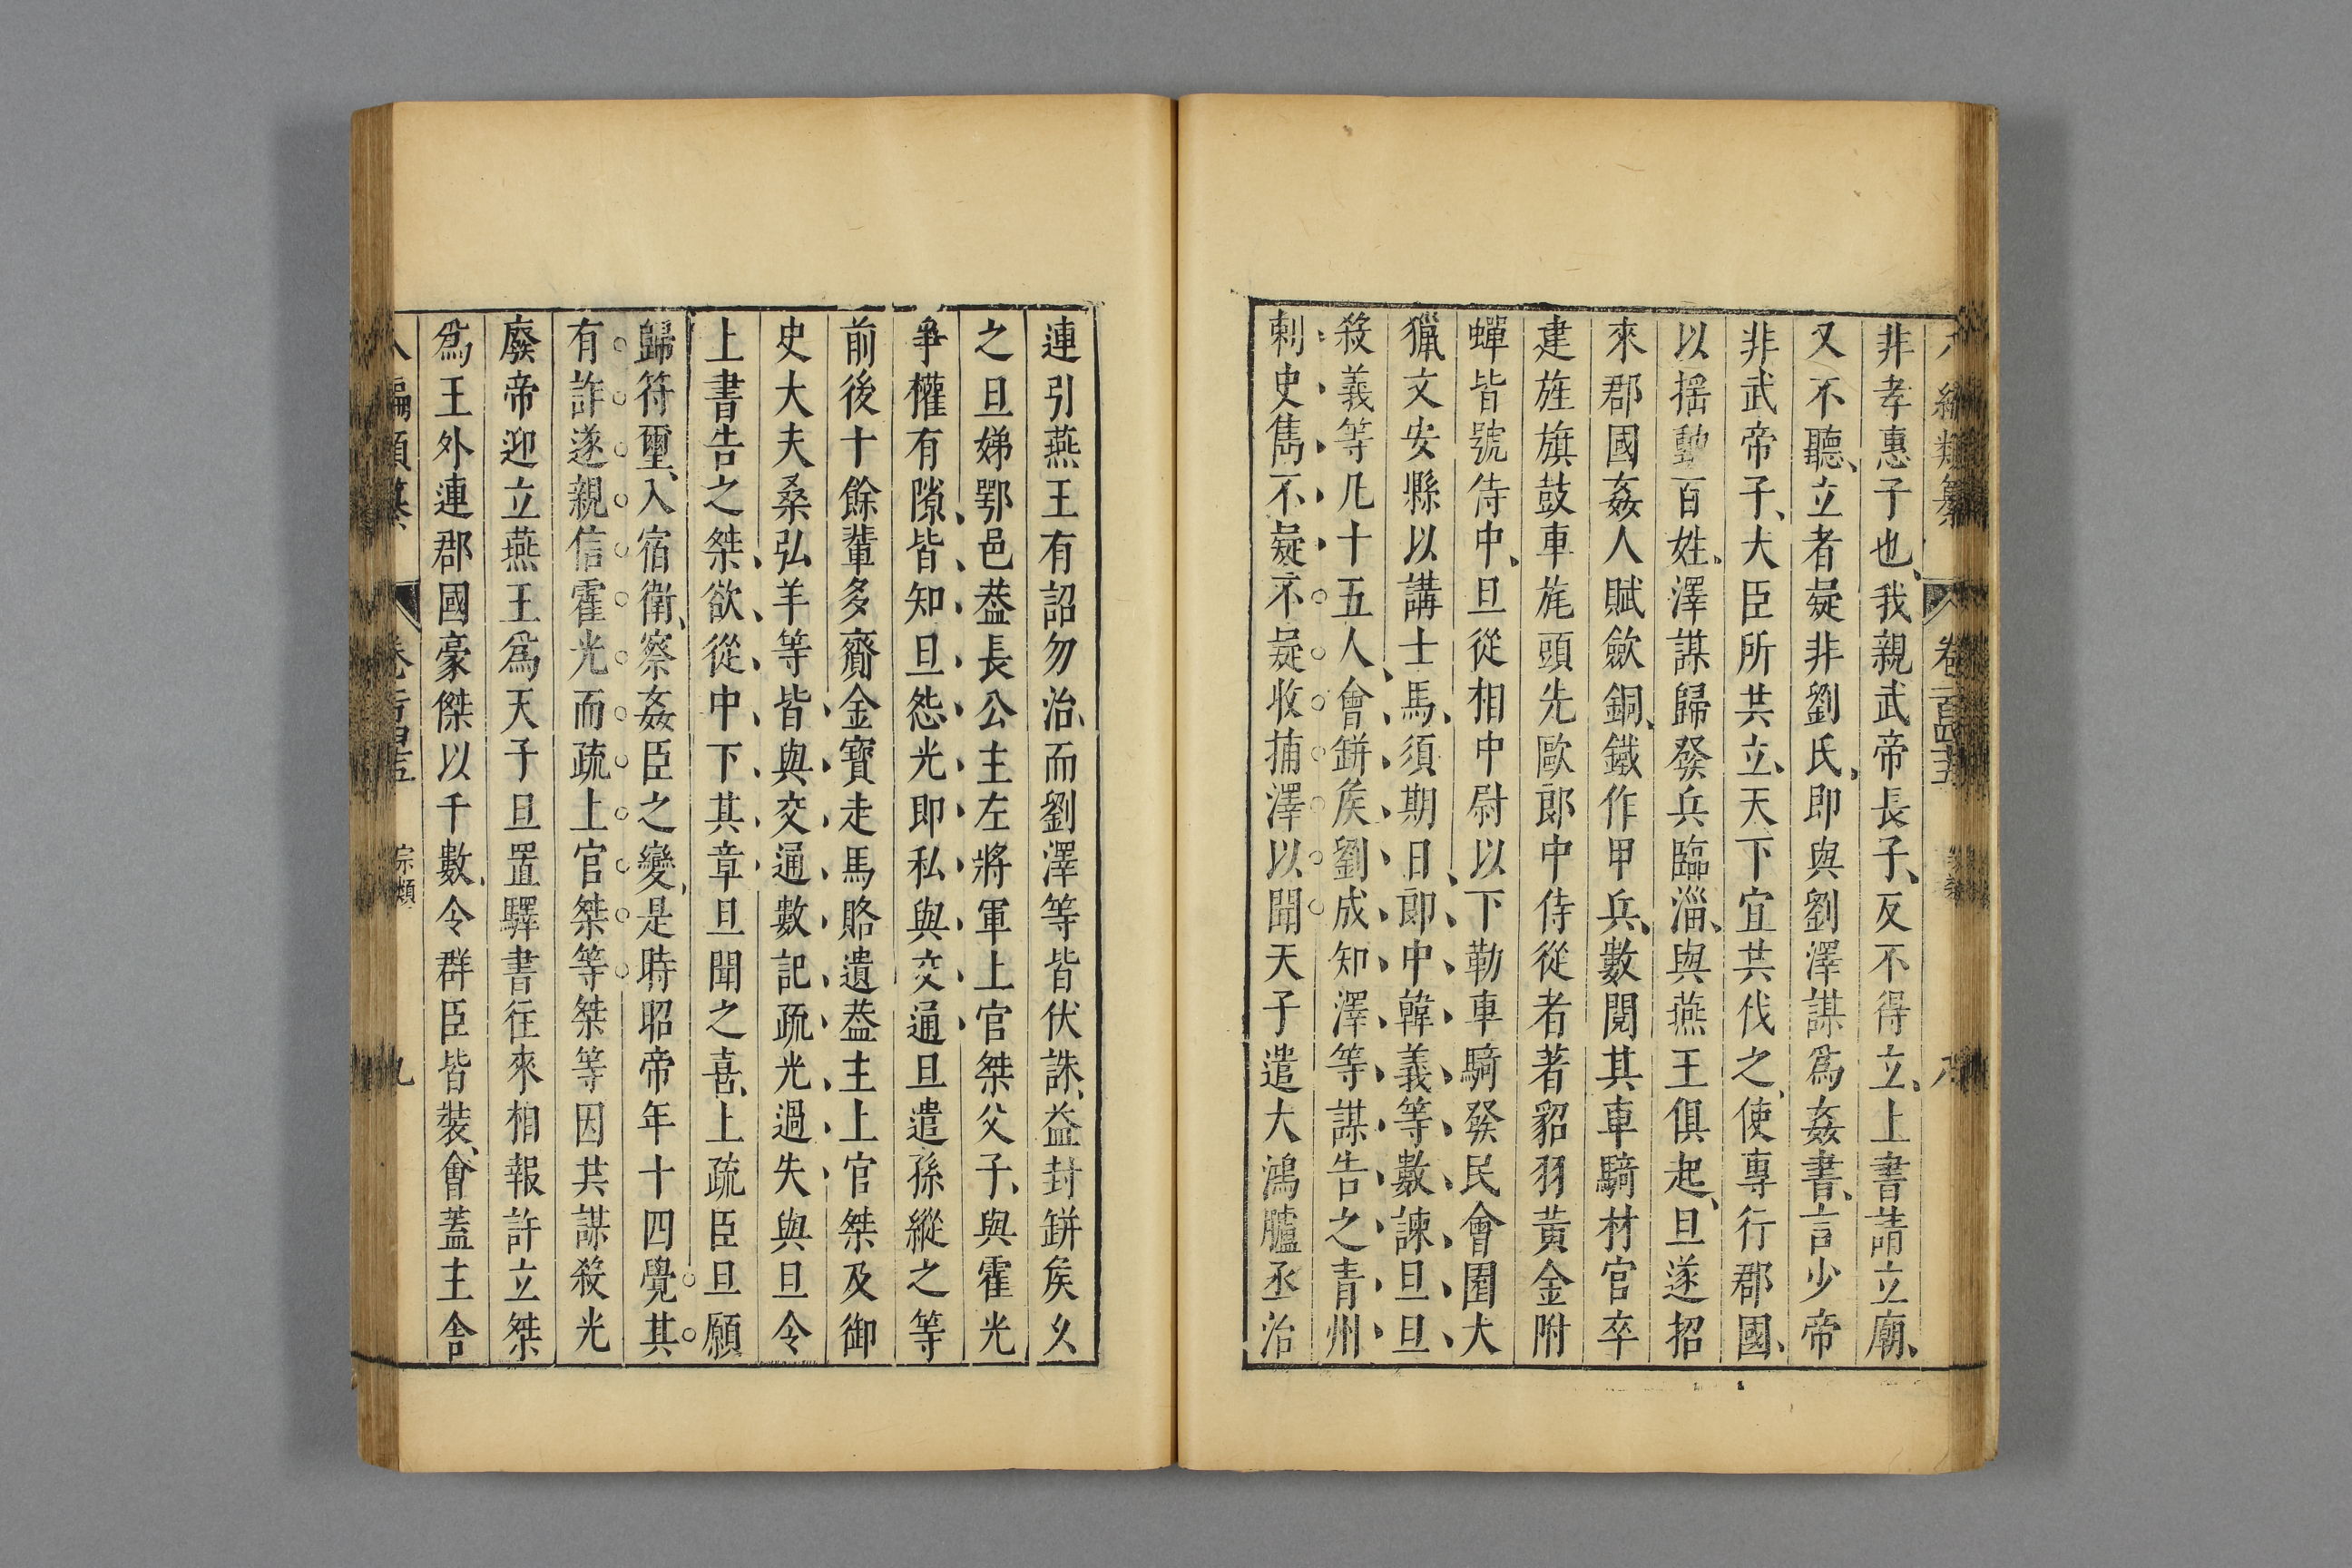 八編類纂 卷一百四十五 八
非孝惠子也、我親武帝長子、反不得立、上書請立廟、
又不聽、立者疑非劉氏、即與劉澤謀爲姦書、言少帝
非武帝子、大臣所共立、天下宜共伐之、使專行郡國、
以搖動百姓、澤謀歸發兵臨淄、與燕王俱起、旦遂招
來郡國姦人賦歛銅、鐵作甲兵、數閱其車騎材官卒
建旌旗鼓車旄頭先歐郎中侍從者著貂羽黃金附
蟬皆號侍中、旦從相中尉以下勒車騎發民會圍大
獵文安縣以講士馬、須期日、郎中韓義等數諫旦旦
殺義等凡十五人、會缾矦劉成知澤等謀告之青州
刺史雋不疑不疑收捕澤以聞天子遣大鴻臚丞治
連引燕王有詔勿治、而劉澤等皆伏誅、益封缾矦乆
之旦娣鄂邑葢長公主左將軍上官桀父子、與霍光
爭權有隙、皆知旦怨光即私與交通旦遣孫縱之等
前後十餘輩多齎金寶走馬賂遺葢主上官桀及御
史大夫桑弘羊等皆與交通數記疏光過失與旦令
上書告之桀欲從中下其章旦聞之喜、上疏臣旦願
歸符璽、入宿衛、察姦臣之變、是時昭帝年十四覺其
有詐遂親信霍光而疏上官桀等桀等因共謀殺光
廢帝迎立燕王爲天子旦置驛書往來相報許立桀
爲王外連郡國豪傑以千數、令群臣皆裝、會蓋主舍
八編類纂 卷一百四十五 宗類 九